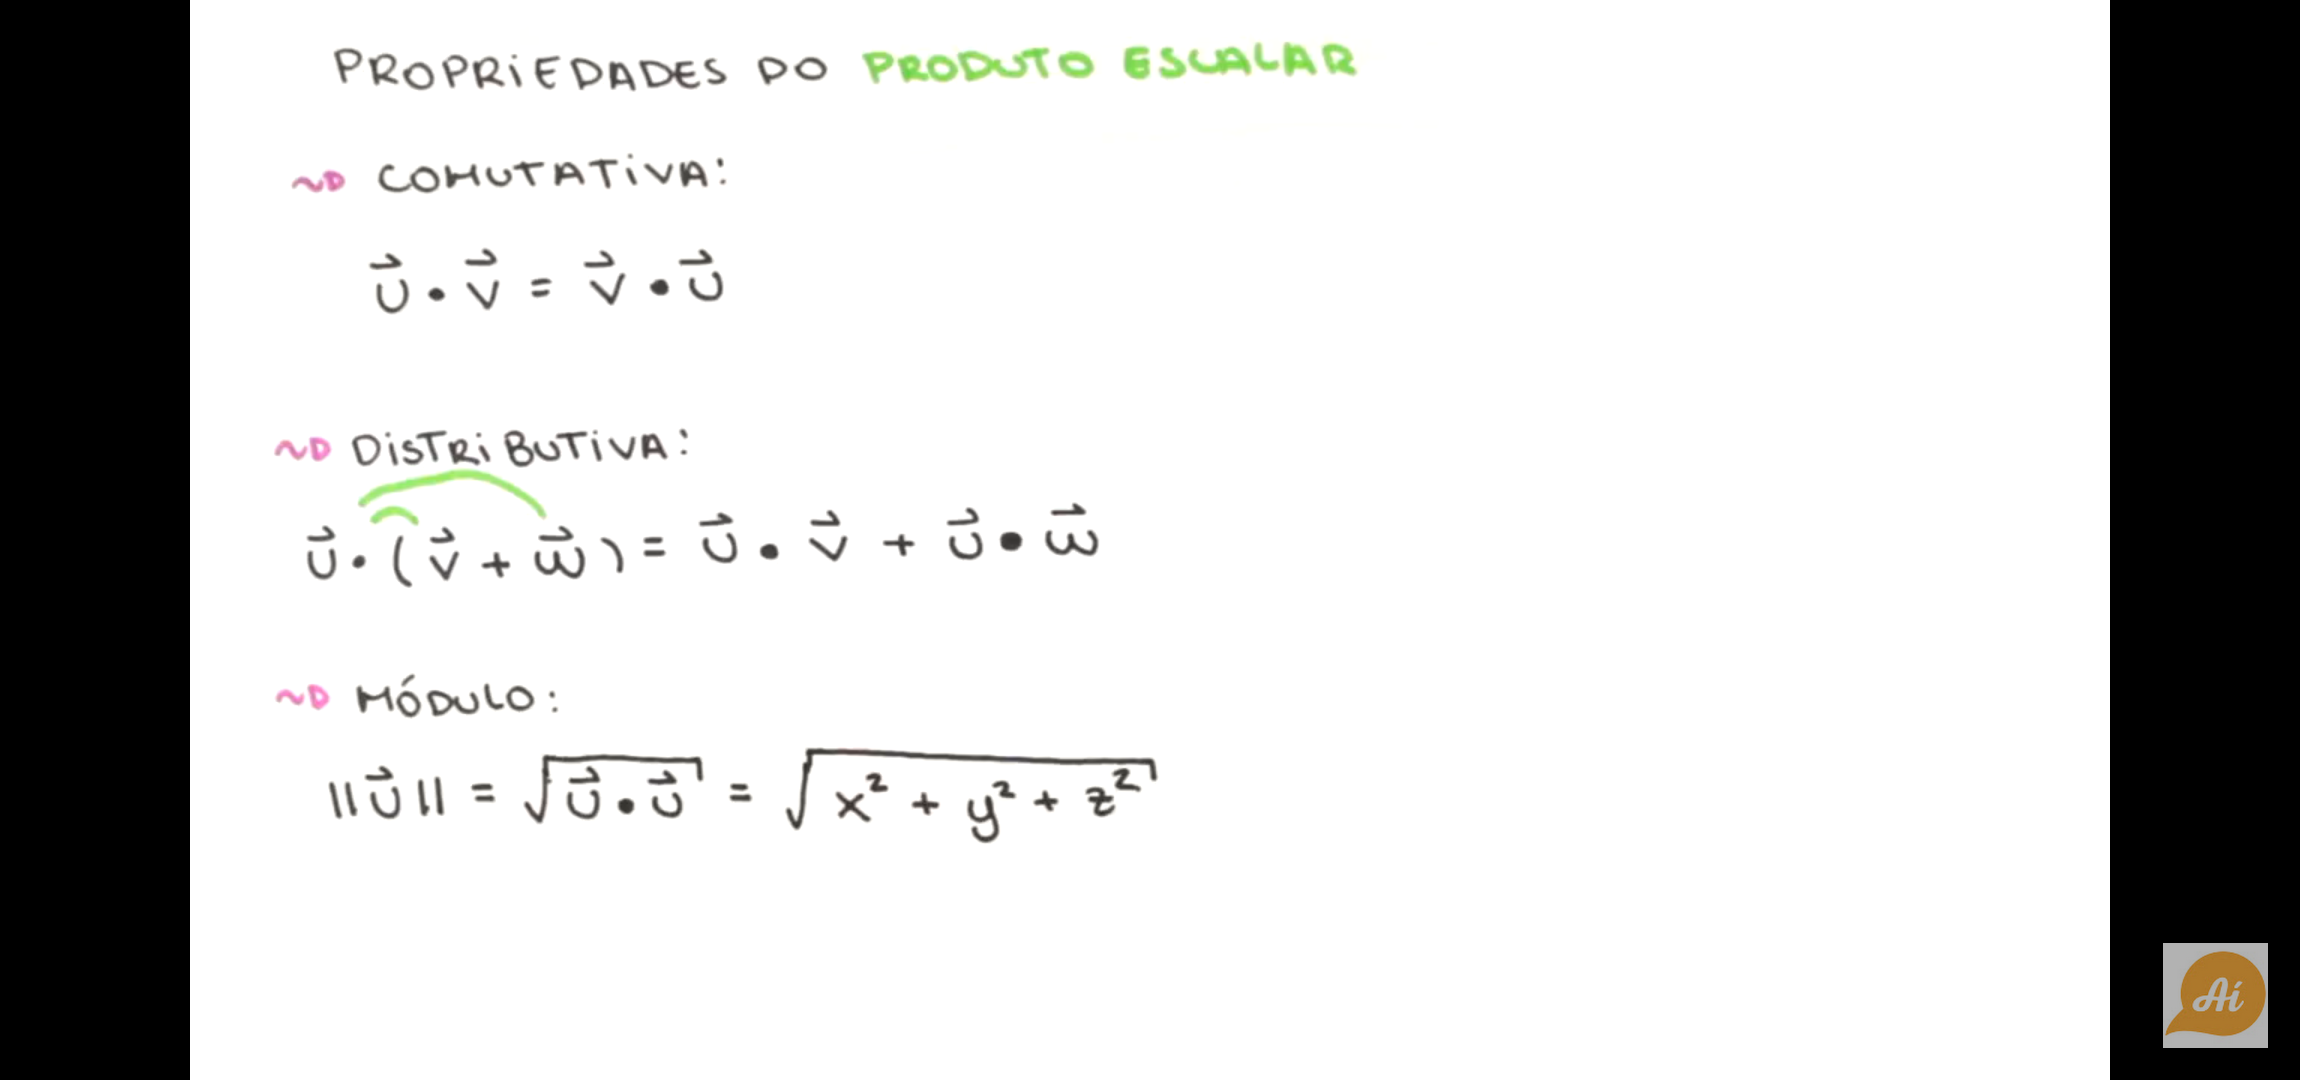 PROPRIEDADES DO PRODUTO ESCALAR
~D COMUTATIVA:
u⃗ • v⃗ = v⃗ • u⃗
~D DISTRIBUTIVA:
u⃗ • (v⃗ + w⃗) = u⃗ • v⃗ + u⃗ • w⃗
~D MÓDULO:
||u⃗|| = √(u⃗ • u⃗) = √(x² + y² + z²)
Aí